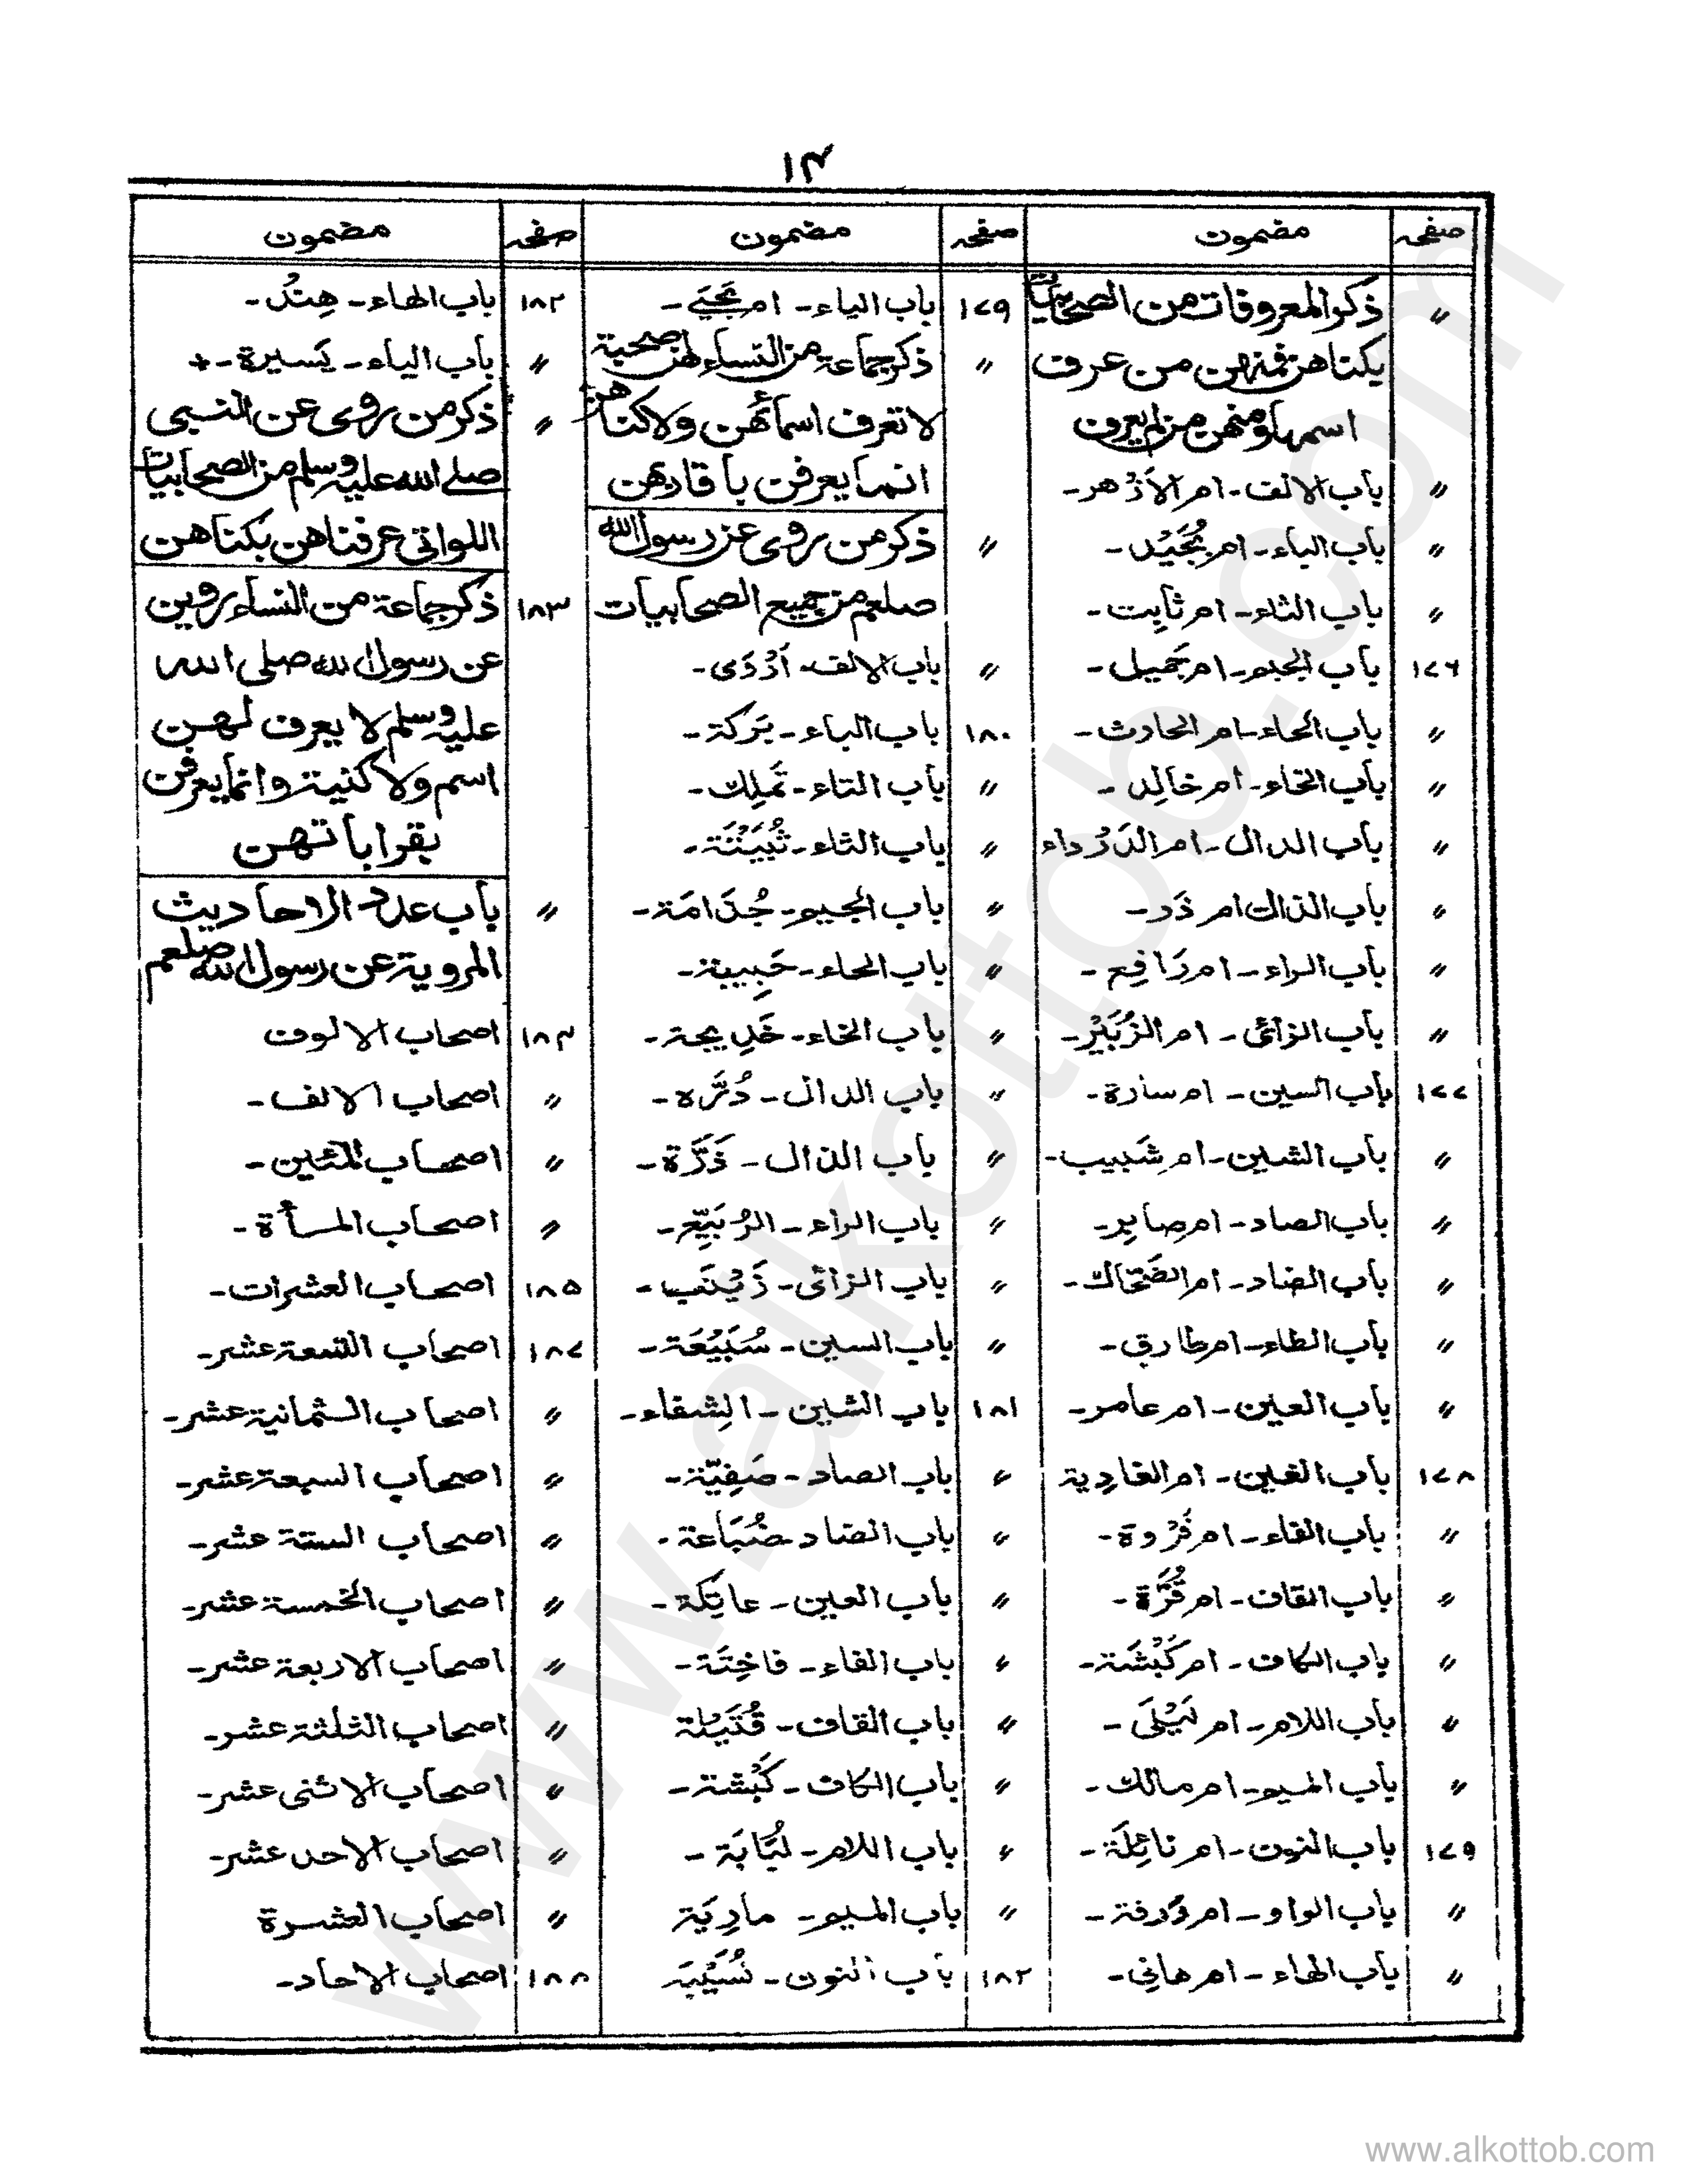 ۱۴
صفحہ مضمون
〃 ذكر المعروفات من الصحابيات
بكناهن فمنهن من عرف
اسمها ومنهن من لم يعرف
〃 باب الالف - ام الازهر -
〃 باب الباء - ام بُجَيْد -
〃 باب الثاء - ام ثابِت -
۱۷۶ باب الجيم - ام جَميل -
〃 باب الحاء - ام الحارث -
〃 باب الخاء - ام خالِد -
〃 باب الدال - ام الدَرْداء
〃 باب الذال ام ذَر -
〃 باب الراء - ام رَافِع -
〃 باب الزائى - ام الزُبَيْر -
۱۷۷ باب السين - ام سارة -
〃 باب الشين - ام شَبيب -
〃 باب الصاد - ام صابِر -
〃 باب الضاد - ام الضَحّاك -
〃 باب الطاء - ام طارق -
〃 باب العين - ام عامر -
۱۷۸ باب الغين - ام الغادِية
〃 باب الفاء - ام فَرْوة -
〃 باب القاف - ام قُرَّة -
〃 باب الكاف - ام كَبْشَة -
〃 باب اللام - ام لَيْلَى -
〃 باب الميم - ام مالك -
۱۷۹ باب النون - ام نائِلَة -
〃 باب الواو - ام وَرقة -
〃 باب الهاء - ام هانِي -
صفحہ مضمون
۱۷۹ باب الياء - ام يَحْيَے -
〃 ذكر جماعة من النساء لهن صحبة
لا تعرف اسمائهن ولا كناهن
انما يعرفن باقاربهن
〃 ذكر من روى عن رسول الله
صلعم من جميع الصحابيات
〃 باب الالف - اَرْوَى -
۱۸۰ باب الباء - بَركة -
〃 باب التاء - تَملِك -
〃 باب الثاء - ثُبَيْتَة -
〃 باب الجيم - جُدَامَة -
〃 باب الحاء - حَبِيبة -
〃 باب الخاء - خَدِيجة -
〃 باب الدال - دُرَّه -
〃 باب الذال - ذَرَّة -
〃 باب الراء - الرُبَيِّع -
〃 باب الزائى - زَيْنَب -
〃 باب السين - سُبَيْعَة -
۱۸۱ باب الشين - الشِفاء -
〃 باب الصاد - صَفِيّة -
〃 باب الضاد - ضُبَاعة -
〃 باب العين - عاتِكة -
〃 باب الفاء - فاخِتَة -
〃 باب القاف - قُتَيْلة
〃 باب الكاف - كَبْشة -
〃 باب اللام - لُبَابَة -
〃 باب الميم - مارِيَة
۱۸۲ باب النون - نُسَيْبَة
صفحہ مضمون
۱۸۲ باب الهاء - هِنْدُ -
〃 باب الياء - يَسيرة - +
〃 ذكر من روى عن النبى
صلے الله عليه وسلم من الصحابيات
اللواتى عرفناهن بكناهن
۱۸۳ ذكر جماعة من النساء روين
عن رسول الله صلى الله
عليه وسلم لا يعرف لهن
اسم ولا كنية وانما يعرفن
بقراباتهن
〃 باب عدد الاحاديث
المروية عن رسول الله صلعم
۱۸۴ اصحاب الالوف
〃 اصحاب الالف -
〃 اصحاب المئين -
〃 اصحاب المأة -
۱۸۵ اصحاب العشرات -
۱۸۷ اصحاب التسعة عشر -
〃 اصحاب الثمانية عشر -
〃 اصحاب السبعة عشر -
〃 اصحاب الستة عشر -
〃 اصحاب الخمسة عشر -
〃 اصحاب الاربعة عشر -
〃 اصحاب الثلثة عشر -
〃 اصحاب الاثنى عشر -
〃 اصحاب الاحد عشر -
〃 اصحاب العشرة
۱۸۸ اصحاب الاحاد -
www.alkottob.com
www.alkottob.com